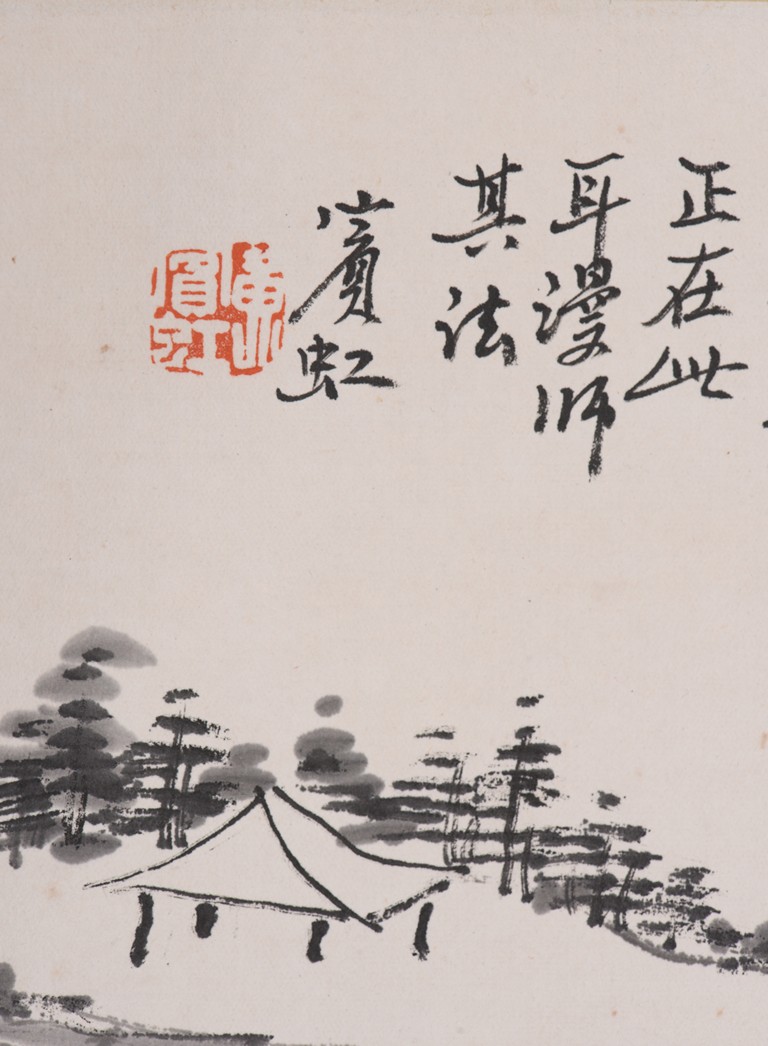 正在此
耳漫师
其法
賓虹
黄賓虹